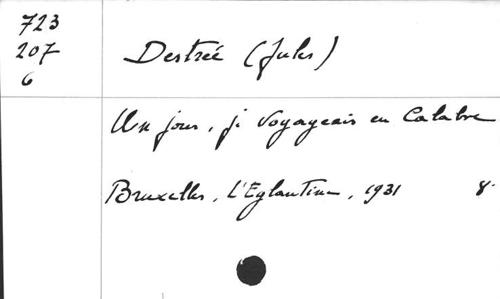 723
207
6
Destrée (Jules)
Un jour, je voyageais en Calabre
Bruxelles, L'Eglantine, 1931 8°